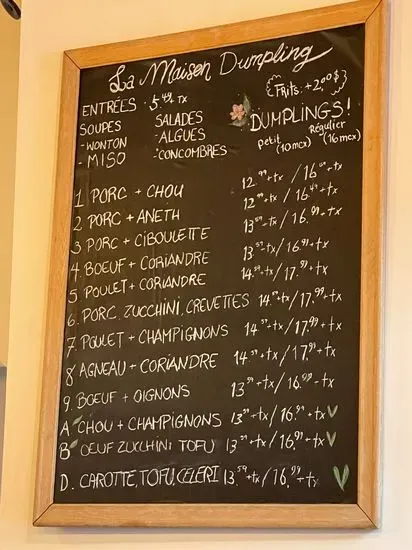 La Maison Dumpling
ENTRÉES - 5.49+tx
SOUPES
- WONTON
- MISO
SALADES
- ALGUES
- CONCOMBRES
Frits: +2,00$
DUMPLINGS!
petit (10mcx)
Régulier (16mcx)
1 PORC + CHOU 12.99+tx / 16.49+tx
2 PORC + ANETH 12.99+tx / 16.49+tx
3 PORC + CIBOULETTE 13.59+tx / 16.99+tx
4 BOEUF + CORIANDRE 13.59+tx / 16.99+tx
5 POULET + CORIANDRE 14.59+tx / 17.99+tx
6. PORC, ZUCCHINI, CREVETTES 14.59+tx / 17.99+tx
7 POULET + CHAMPIGNONS 14.59+tx / 17.99+tx
8 AGNEAU + CORIANDRE 14.59+tx / 17.99+tx
9. BOEUF + OIGNONS 13.59+tx / 16.99+tx
A CHOU + CHAMPIGNONS 13.59+tx / 16.99+tx
B OEUF ZUCCHINI TOFU 13.59+tx / 16.99+tx
D. CAROTTE, TOFU, CELERI 13.59+tx / 16.99+tx